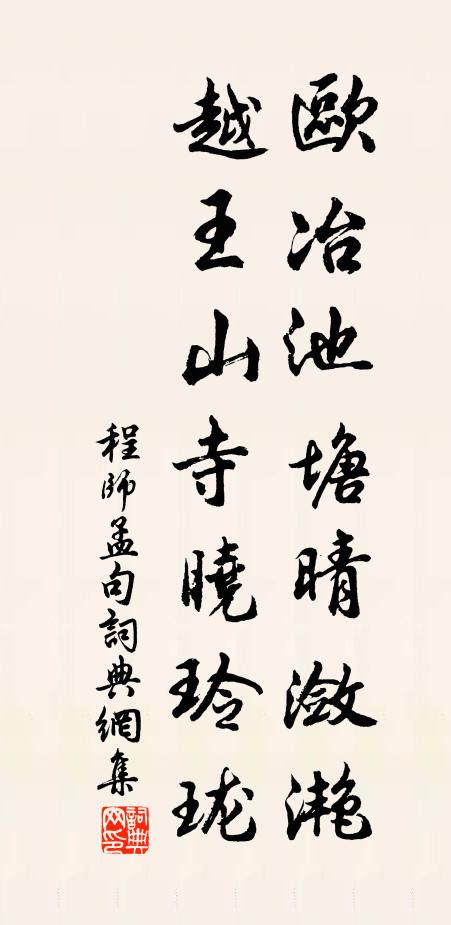 歐冶池塘晴瀲灔
越王山寺曉玲珑
程師孟句詞典網集
詞典网印